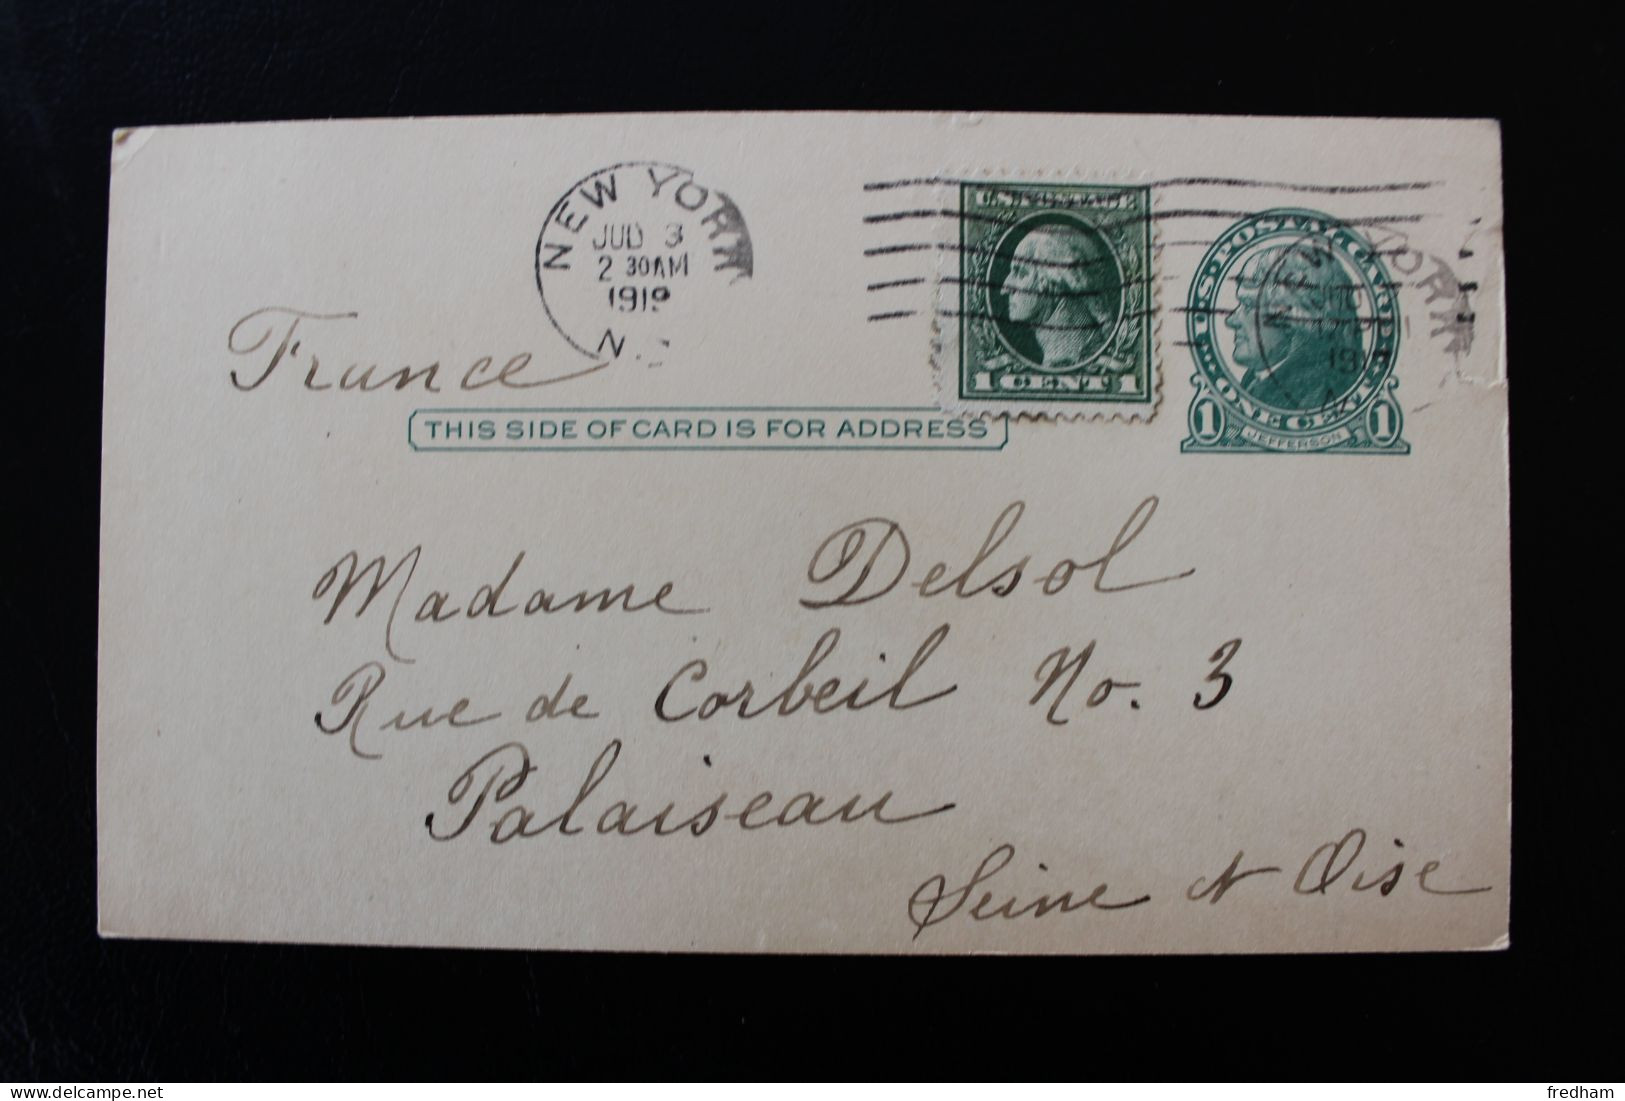 NEW YORK
JUL 3
2 30AM
1919
N.
U.S. POSTAGE
1 CENT 1
U.S. POSTAL CARD
NEW YORK
1 ONE CENT 1
JEFFERSON
France
THIS SIDE OF CARD IS FOR ADDRESS
Madame Delsol
Rue de Corbeil No. 3
Palaiseau
Seine et Oise
delcampe.net
fredham